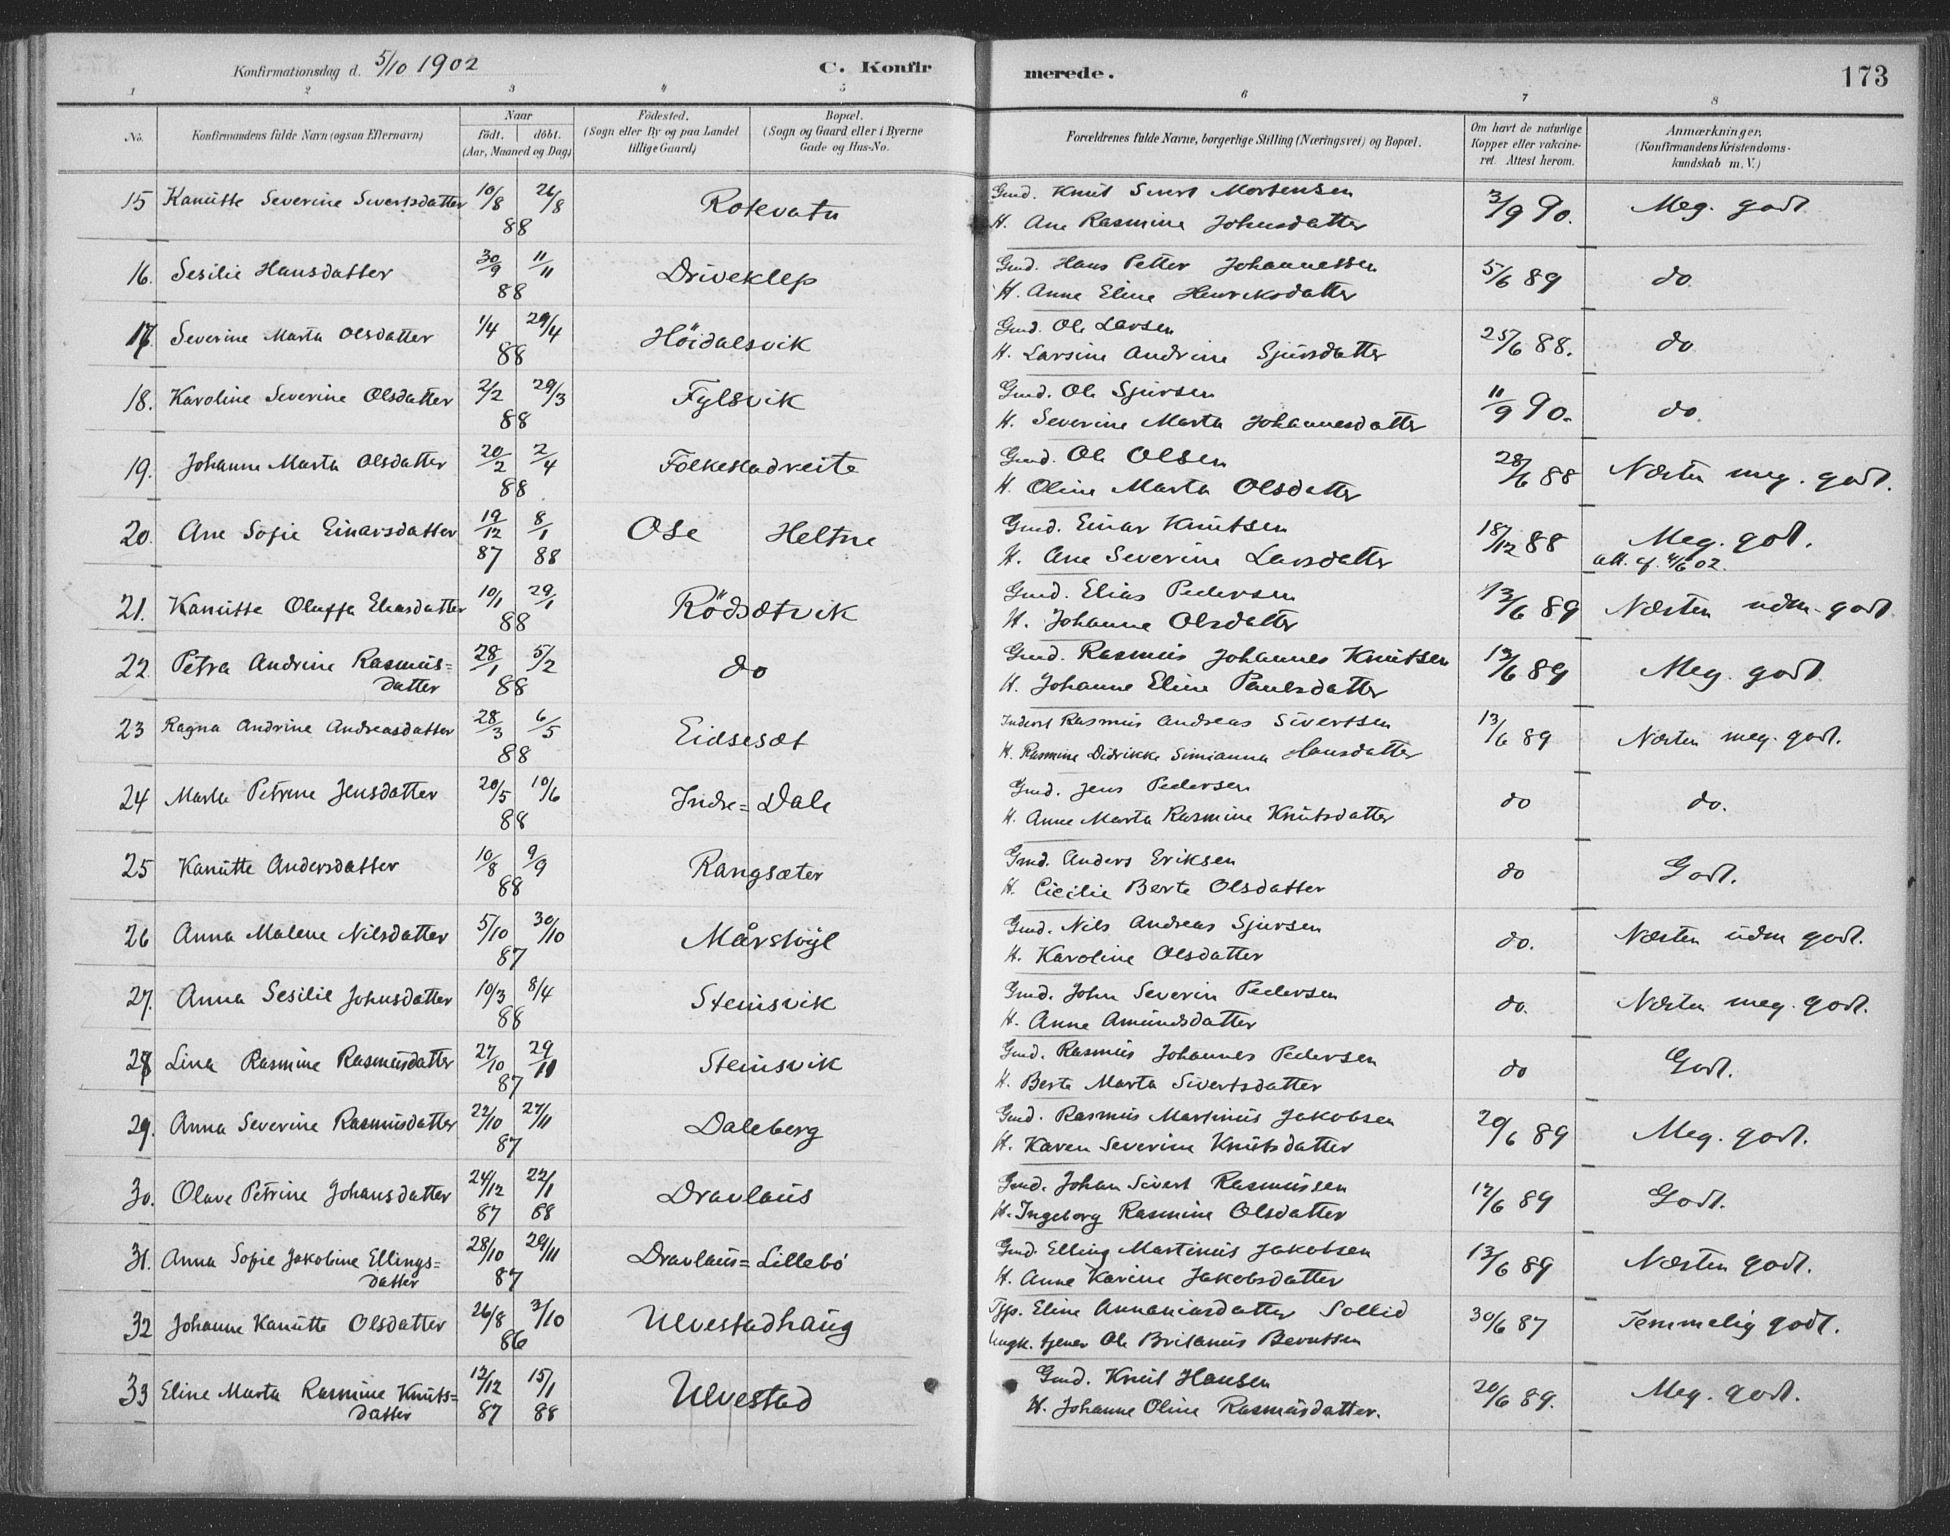 Konfirmationsdag d. 5/10 1902 C. Konfirmerede. 173
1 2 3 4 5 6 7 8
No. Konfirmandens fulde Navn (ogsaa Efternavn) Naar födt. döbt. (Aar, Maaned og Dag) Födested. (Sogn eller By og paa Landet tillige Gaard) Bopæl. (Sogn og Gaard eller i Byerne Gade og Hus-No. Forældrenes fulde Navne, borgerlige Stilling (Næringsvei) og Bopæl. Om havt de naturlige Kopper eller vakcineret. Attest herom. Anmærkninger. (Konfirmandens Kristendomskundskab m. V.)
15 Kanutte Severine Sivertsdatter 10/8 26/8 88 Rotevatn Gmd. Knut Sivert Mortensen 3/9 90. Meg. godt
H. Ane Rasmine Johnsdatter
16. Sesilie Hansdatter 30/9 11/11 88 Driveklep Gmd. Hans Petter Johannessen 5/6 89 do.
H. Anne Eline Henriksdatter
17. Severine Marta Olsdatter 1/4 29/4 88 Höidalsvik Gmd. Ole Larsen 25/6 88. do
H. Larsine Andrine Sjursdatter
18. Karoline Severine Olsdatter 2/2 29/3 88 Fylsvik Gmd. Ole Sjursen 11/9 90. do.
H. Severine Marta Johannesdatter
19. Johanne Marta Olsdatter 20/2 2/4 88 Folkestadreite Gmd. Ole Olsen 28/6 88 Næsten meg. godt.
H. Oline Marta Olsdatter
20. Ane Sofie Einarsdatter 19/12 87 8/1 88 Ose Heltne Gmd. Einar Knutsen 18/12 88 Meg. godt.
H. Ane Severine Larsdatter att. af 4/6 02.
21. Kanutte Oluffa Eliasdatter 10/1 29/1 88 Rödsætvik Gmd. Elias Pedersen 13/6 89 Næsten udm. godt
H. Johanne Olsdatter
22. Petra Andrine Rasmus= 28/1 5/2 88 do Gmd. Rasmus Johannes Knutsen 13/6 89 Meg. godt
datter H. Johanne Eline Paulsdatter
23 Ragna Andrine Andreasdatter 28/3 6/5 88 Eidsesæt Inderst Rasmus Andreas Sivertsen 13/6 89 Næsten meg. godt.
H. Rasmine Didrikke Simianna Hansdatter
24 Marta Petrine Jensdatter 20/5 10/6 88 Indre=Dale Gmd. Jens Pedersen do do.
H. Anne Marta Rasmine Knutsdatter
25 Kanutte Andersdatter 10/8 9/9 88 Rangsæter Gmd. Anders Eriksen do Godt.
H. Cicilie Berte Olsdatter
26 Anna Malene Nilsdatter 5/10 30/10 87 Mårstöyl Gmd. Nils Andreas Sjursen do. Næsten udm godt.
H. Karoline Olsdatter
27. Anna Sesilie Johnsdatter 10/3 8/4 88 Steinsvik Gmd. John Severin Pedersen do. Næsten meg. godt.
H. Anne Amundsdatter
28 Lina Rasmine Rasmusdatter 27/10 29/11 87 Steinsvik Gmd. Rasmus Johannes Pedersen do Godt.
H. Berte Marta Sivertsdatter
29. Anna Severine Rasmusdatter 22/10 27/11 87 Daleberg Gmd. Rasmus Martinus Jakobsen 20/6 89 Meg. godt.
H. Karen Severine Knutsdatter
30. Olave Petrine Johansdatter 24/12 87 22/1 88 Dravlaus Gmd. Johan Sivert Rasmussen 12/6 89 Godt.
H. Ingeborg Rasmine Olsdatter
31. Anna Sofie Jakobine Ellings= 28/10 29/11 87 Dravlaus=Lillebö Gmd. Elling Martinus Jakobsen 13/6 89 Næsten godt.
datter H. Anne Karine Jakobsdatter
32 Johanne Kanutte Olsdatter 26/8 3/10 86 Ulvestadhaug Eline Annaniasdatter Sollid 30/6 87 Temmelig godt.
Ungk. tjener Ole Britanus Berntsen
33 Eline Marta Rasmine Knuts= 12/12 87 15/1 88 Ulvestad Gmd. Knut Hansen 20/6 89. Meg. godt.
datter H. Johanne Oline Rasmusdatter.